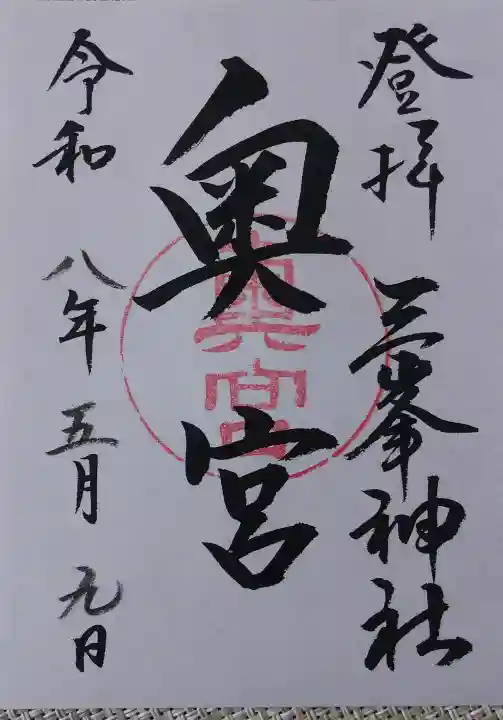 登拝 三峯神社
奥宮
奥宮
令和八年五月九日